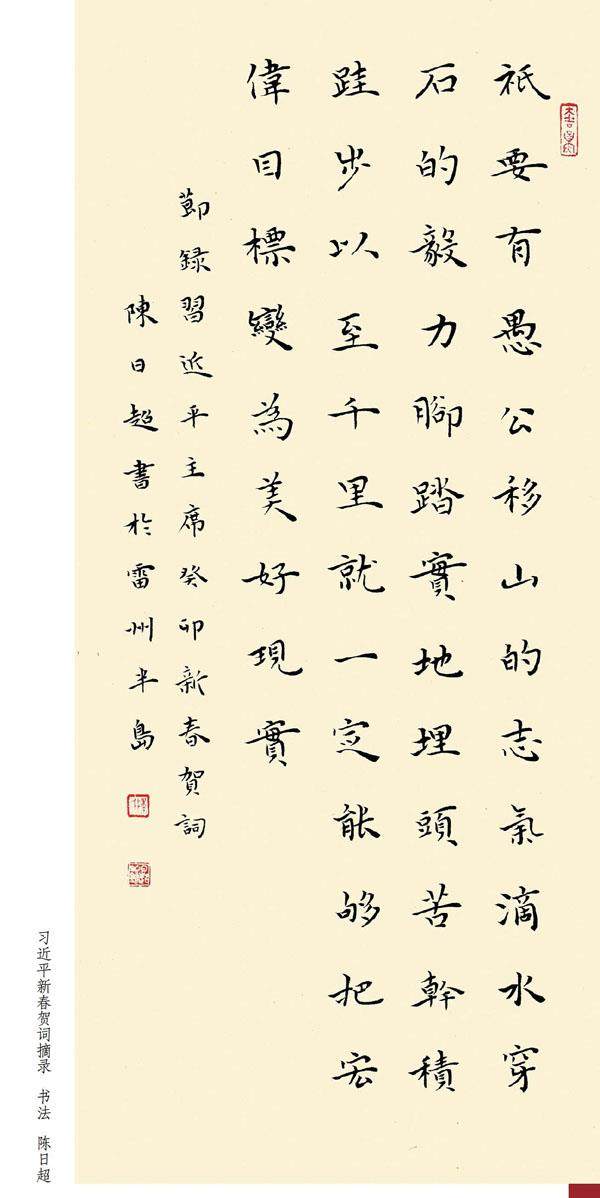 祇要有愚公移山的志氣滴水穿
石的毅力腳踏實地埋頭苦幹積
跬步以至千里就一定能够把宏
偉目標變為美好現實
節錄習近平主席癸卯新春賀詞
陳日超書於雷州半島
习近平新春贺词摘录 书法 陈日超